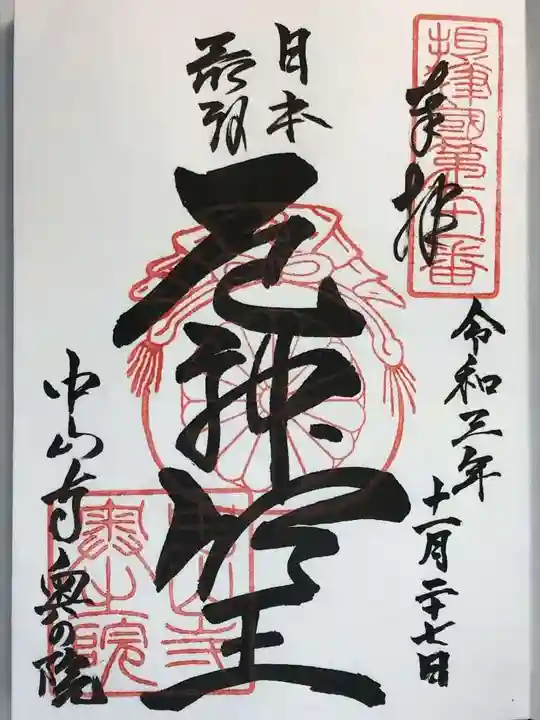 摂津國第一番
奉拝
令和三年
十一月二十七日
日本
最初
厄神堂
中山寺奥の院
中山寺
奥之院